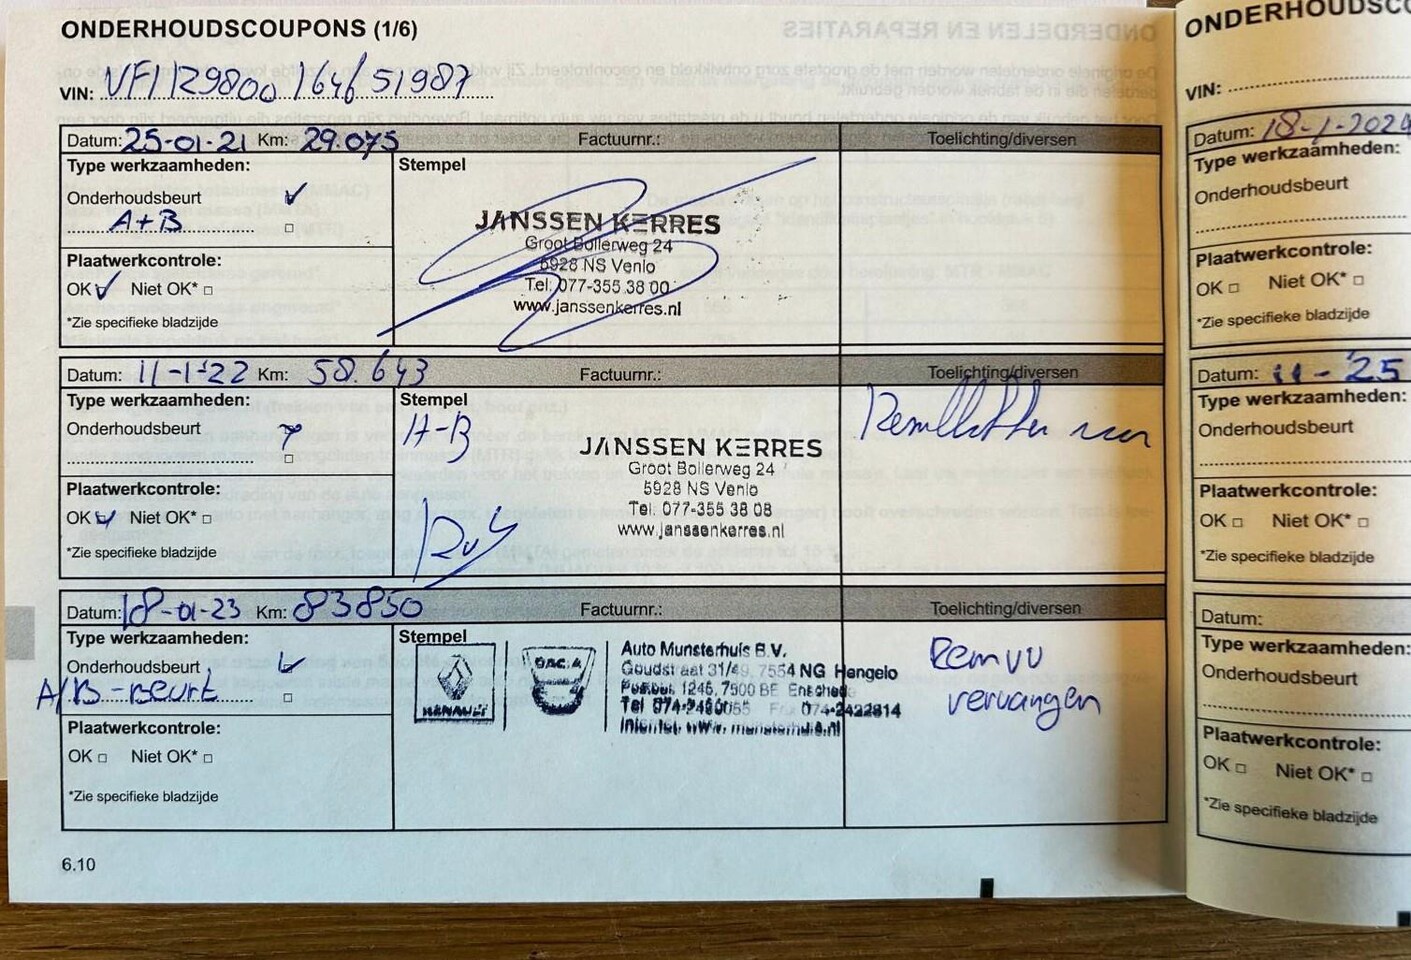 ONDERHOUDSCOUPONS (1/6)
VIN:
Datum: 25-01-21 Km: 29.075 Factuurnr.: Toelichting/diversen
Type werkzaamheden: Stempel
Onderhoudsbeurt
A+B
Plaatwerkcontrole:
OK Niet OK*
*Zie specifieke bladzijde
JANSSEN KERRES
Groot Bollerweg 24
5928 NS Venlo
Tel: 077-355 38 00
www.janssenkerres.nl
Datum: 11-1-22 Km: 58.643 Factuurnr.: Toelichting/diversen
Type werkzaamheden: Stempel
Onderhoudsbeurt
A-B
Plaatwerkcontrole:
OK Niet OK*
*Zie specifieke bladzijde
JANSSEN KERRES
Groot Bollerweg 24
5928 NS Venlo
Tel: 077-355 38 08
www.janssenkerres.nl
Datum: 18-01-23 Km: 83850 Factuurnr.: Toelichting/diversen
Type werkzaamheden: Stempel
Onderhoudsbeurt
A/B-Beurt
Plaatwerkcontrole:
OK Niet OK*
*Zie specifieke bladzijde
RENAULT
DACIA
Auto Munsterhuis B.V.
Goudstraat 31/49, 7554 NG Hengelo
Postbus 1245, 7500 BE Enschede
Tel 074- 074-2422814
Internet: www. munsterhuis.nl
Remvv
vervangen
6.10
ONDERHOUDSCO
VIN:
Datum: 18-1-2024
Type werkzaamheden:
Onderhoudsbeurt
Plaatwerkcontrole:
OK Niet OK*
*Zie specifieke bladzijde
Datum: 11-25
Type werkzaamheden:
Onderhoudsbeurt
Plaatwerkcontrole:
OK Niet OK*
*Zie specifieke bladzijde
Datum:
Type werkzaamheden:
Onderhoudsbeurt
Plaatwerkcontrole:
OK Niet OK*
*Zie specifieke bladzijde